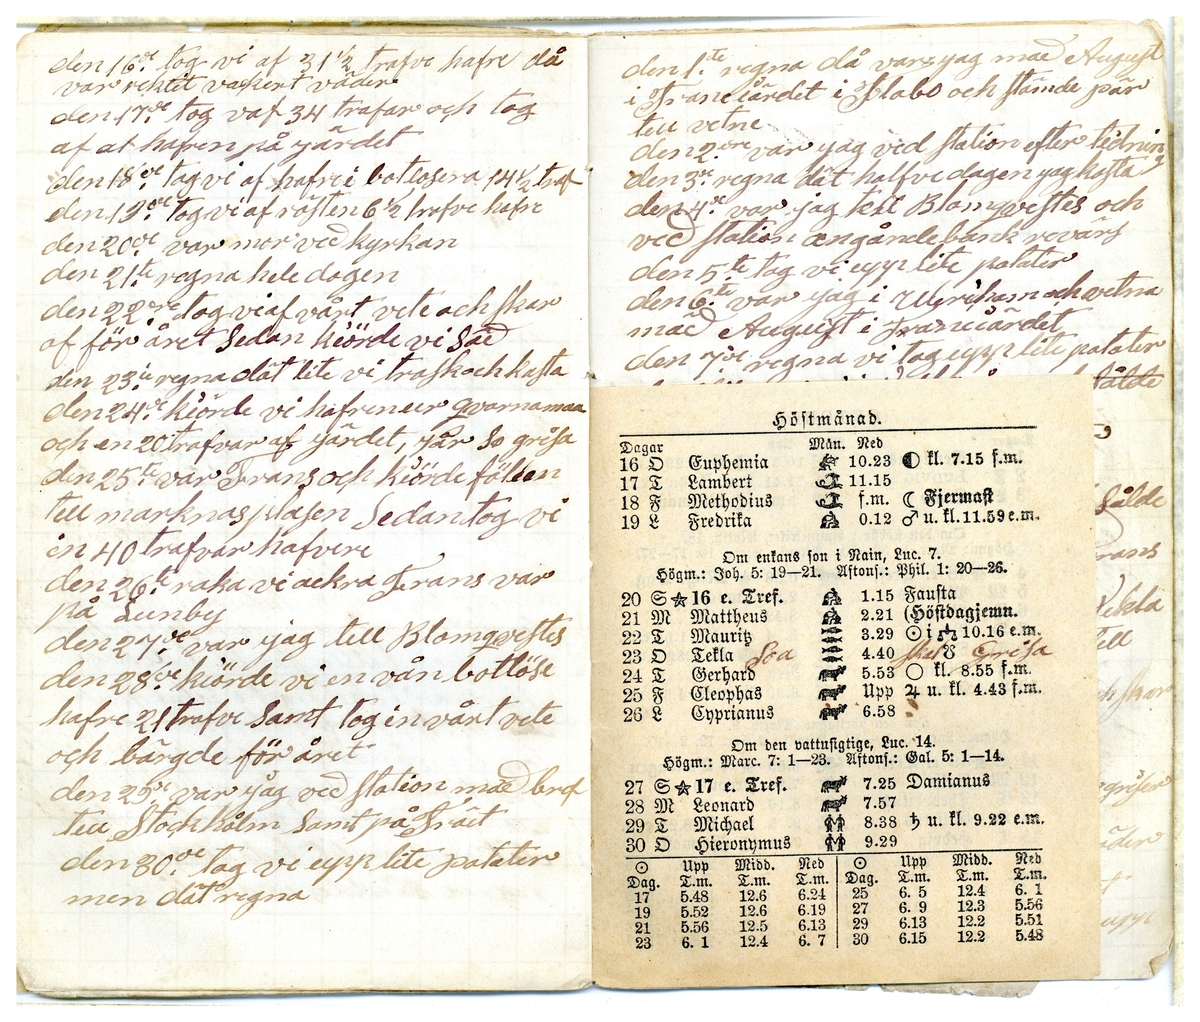 den 16de tog vi af 31 1/2 trafve hafre då
var rektit vakert väder
den 17de tog vaf 34 trafvar och tog
af at hafren på järdet
den 18de tog vi af hafre i botlosera 14 1/2 traf
den 19de tog vi af råsten 6 1/2 trafve hafre
den 20de var mor ved kyrkan
den 21te regna hele dagen
den 22dre tog vi af vårt vete och skar
af för året Sedan kiörde vi Säd
den 23ie regna dät lite vi trask och kasta
den 24de kiörde vi hafren eer qvarnamaa
och en 20 trafvar af järdet, jår So grisa
den 25te var Frans och kiörde fölien
till marknasplasen Sedan tog vi
in 40 trafvar hafvere
den 26te raka vi ackra Frans var
på Lunby
den 27de var jag till Blomqvistes
den 28de kiörde vi en vån botlöse
hafre 21 trafve Samt tog in vårt vete
och bärgde för året
den 29de var jåg ved station med bref
till Stockholm Samt på Träit
den 30de tog vi upp lite potater
men dät regna
den 1ste regna då vars jag med August
i Franciärdet i Slabo och stämde pär
till vetne
den 2dre var jag ved station efter tidning
den 3de regna dät halfve dagen jag kasta
den 4de var jag till Blomqvistes och
ved station angånde bänk revärs
den 5te tog vi upp lite potater
den 6te var jag i Ulfriham och vetna
med August i Franciärdet
den 7de regna vi tog upp lite potater
Höstmånad.
Dagar Mån. Ned
16 O Euphemia 10.23 ◐ kl. 7.15 f.m.
17 T Lambert 11.15
18 F Methodius f.m. ☾ Fjermast
19 L Fredrika 0.12 ♂ u. kl. 11.59 e.m.
Om enkans son i Nain, Luc. 7.
Högm.: Joh. 5: 19—21. Aftons.: Phil. 1: 20—26.
20 S ★ 16 e. Tref. 1.15 Fausta
21 M Mattheus 2.21 (Höstdagjemn.
22 T Mauritz 3.29 ☉ i ♎ 10.16 e.m.
23 O Tekla Soa 4.40 ☋ Grisa
24 T Gerhard 5.53 ○ kl. 8.55 f.m.
25 F Cleophas Upp ♃ u. kl. 4.43 f.m.
26 L Cyprianus 6.58
Om den vattusigtige, Luc. 14.
Högm.: Marc. 7: 1—23. Aftons.: Gal. 5: 1—14.
27 S ★ 17 e. Tref. 7.25 Damianus
28 M Leonard 7.57
29 T Michael 8.38 ♄ u. kl. 9.22 e.m.
30 O Hieronymus 9.29
☉ Upp Midd. Ned ☉ Upp Midd. Ned
Dag. T.m. T.m. T.m. Dag. T.m. T.m. T.m.
17 5.48 12.6 6.24 25 6. 5 12.4 6. 1
19 5.52 12.6 6.19 27 6. 9 12.3 5.56
21 5.56 12.5 6.13 29 6.13 12.2 5.51
23 6. 1 12.4 6. 7 30 6.15 12.2 5.48
sålde